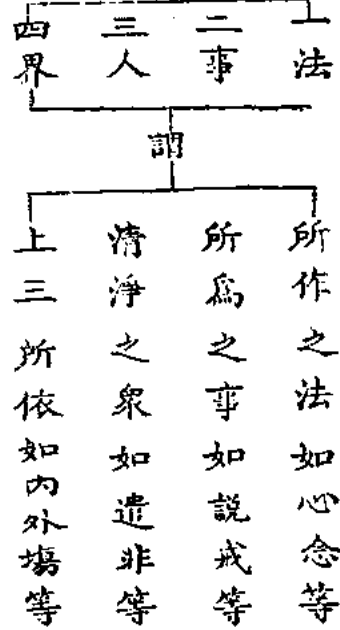 一法
二事
三人
四界
謂
所作之法如心念等
所為之事如說戒等
清淨之眾如遣非等
上三所依如內外場等